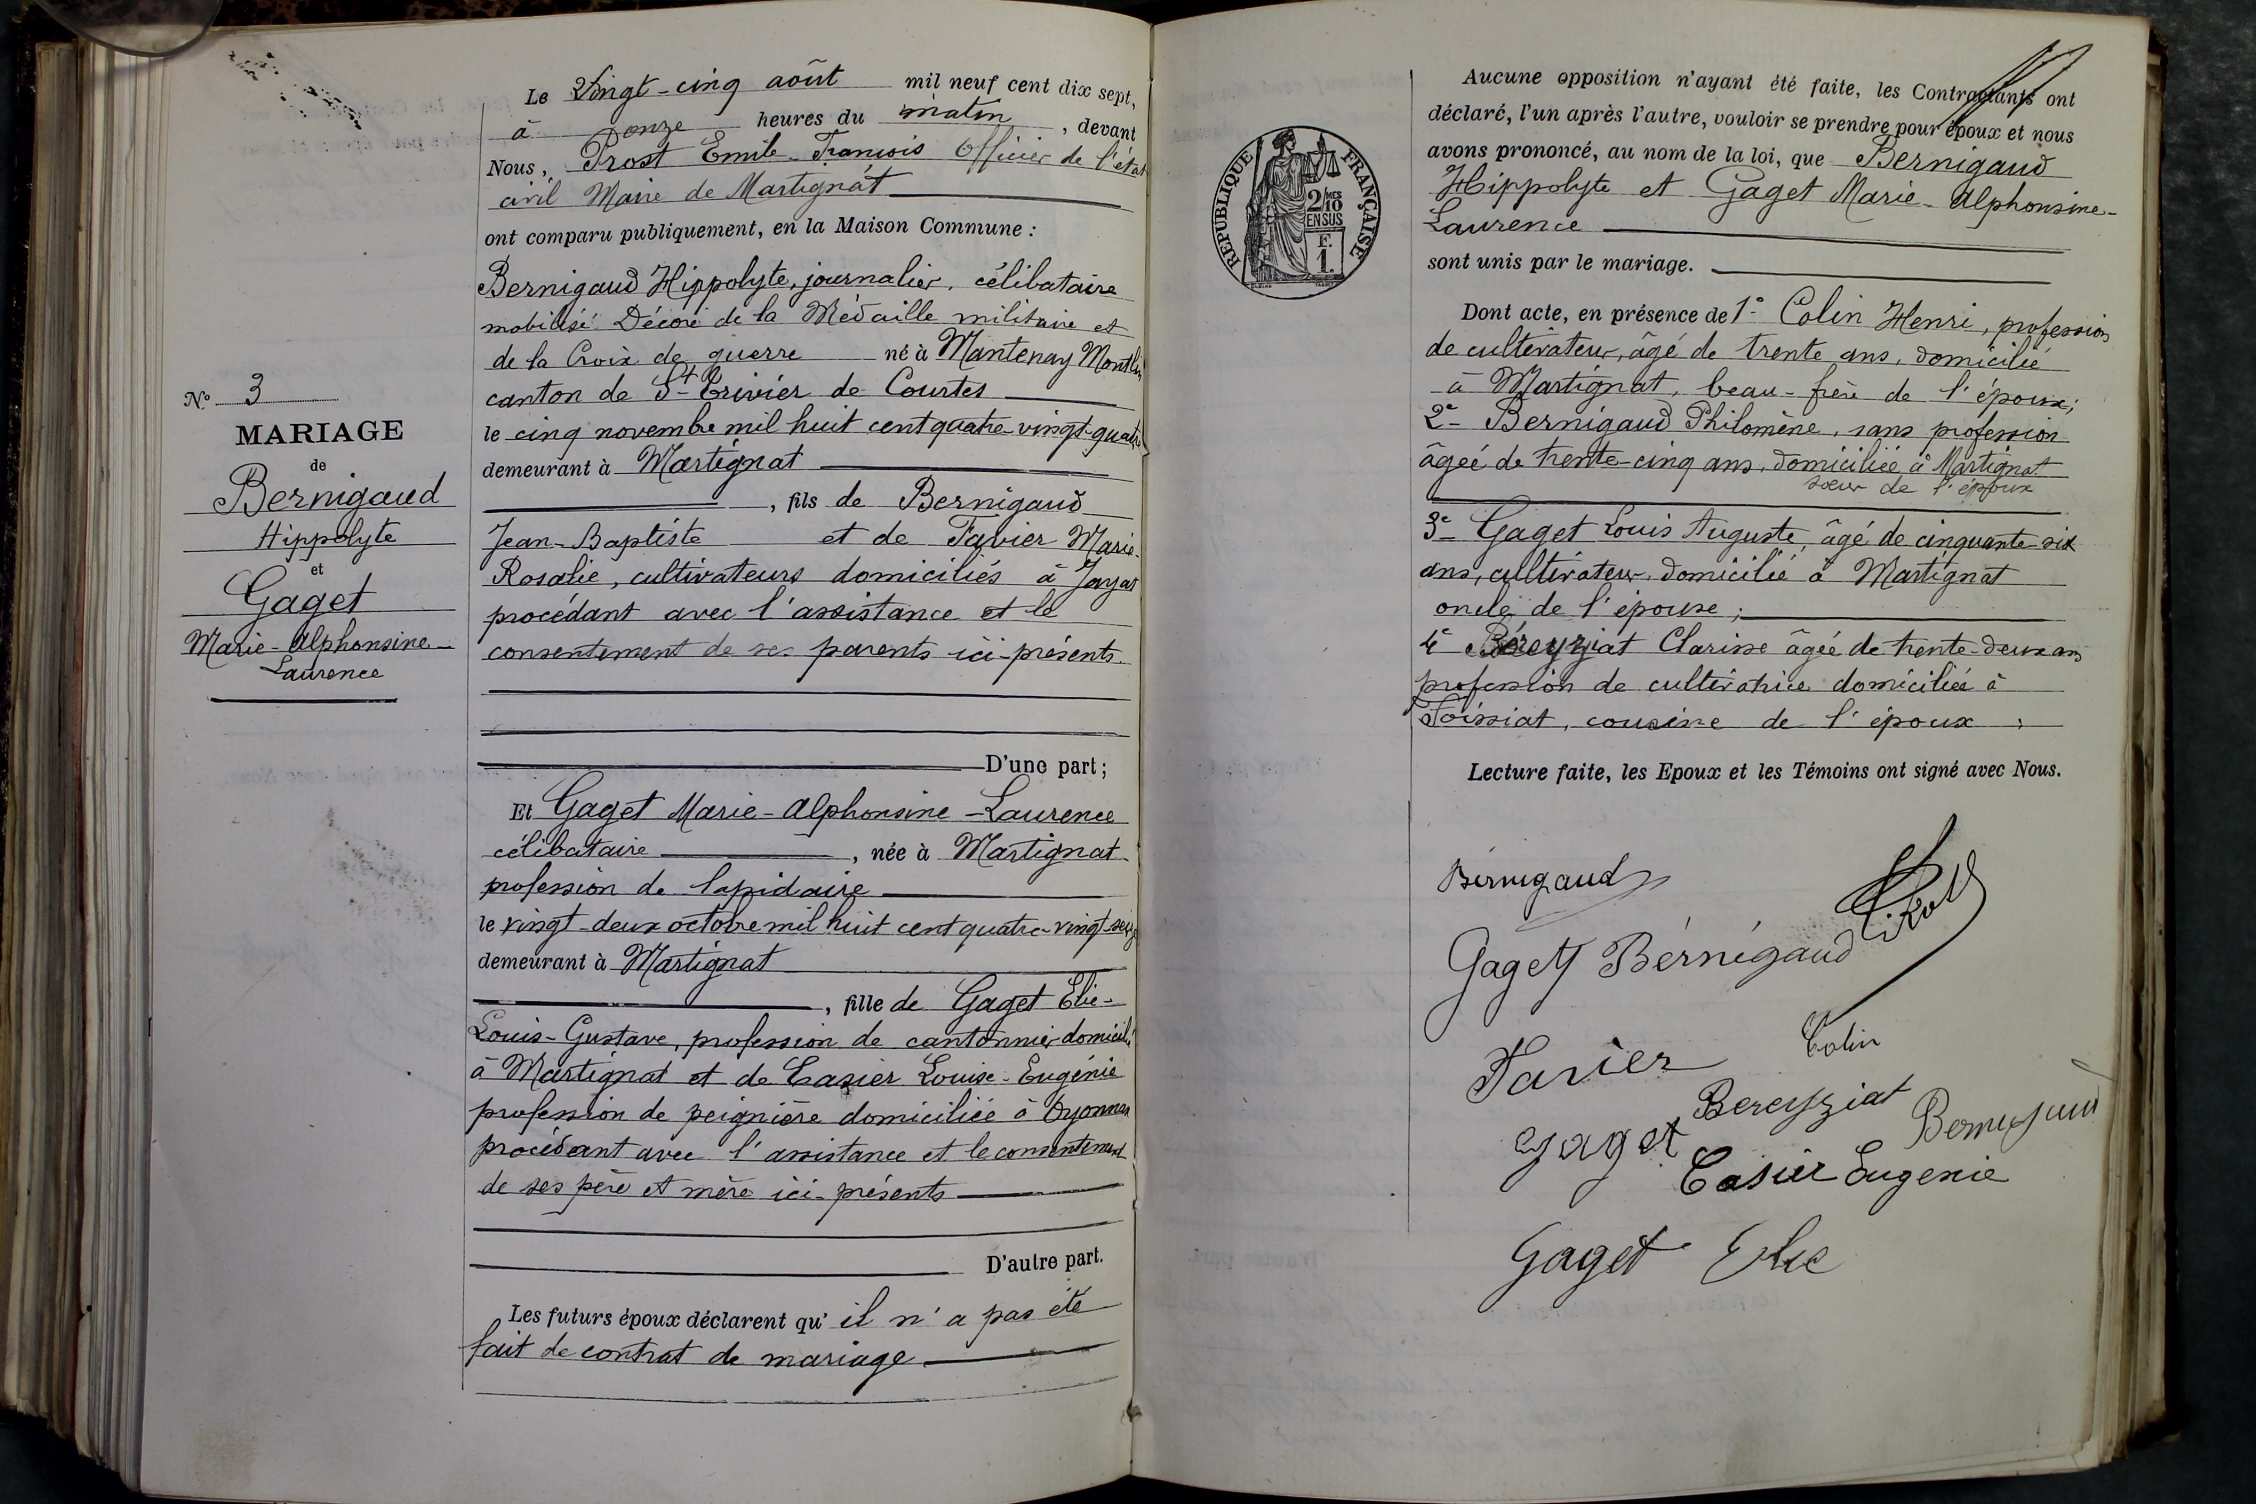 N° 3
MARIAGE
de
Bernigaud
Hippolyte
et
Gaget
Marie-Alphonsine-
Laurence
Le Vingt-cinq août mil neuf cent dix sept,
à onze heures du matin, devant
Nous, Prost Emile François Officier de l'état
civil Maire de Martignat
ont comparu publiquement, en la Maison Commune :
Bernigaud Hippolyte, journalier, célibataire
mobilisé Décoré de la Médaille militaire et
de la Croix de guerre né à Mantenay Montlin
canton de St Trivier de Courtes
le cinq novembre mil huit cent quatre-vingt-quatre
demeurant à Martignat
, fils de Bernigaud
Jean-Baptiste et de Favier Marie-
Rosalie, cultivateurs domiciliés à Jayat
procédant avec l'assistance et le
consentement de ses parents ici-présents
D'une part ;
Et Gaget Marie-Alphonsine-Laurence
célibataire, née à Martignat
profession de lapidaire
le vingt-deux octobre mil huit cent quatre-vingt-seize
demeurant à Martignat
, fille de Gaget Elie-
Louis-Gustave, profession de cantonnier domicilié
à Martignat et de Casier Louise-Eugénie
profession de peignière domiciliée à Oyonnax
procédant avec l'assistance et le consentement
de ses père et mère ici-présents
D'autre part.
Les futurs époux déclarent qu'il n'a pas été
fait de contrat de mariage
RÉPUBLIQUE FRANÇAISE
2/10 MES
EN SUS
F.
1.
Aucune opposition n'ayant été faite, les Contractants ont
déclaré, l'un après l'autre, vouloir se prendre pour époux et nous
avons prononcé, au nom de la loi, que Bernigaud
Hippolyte et Gaget Marie-Alphonsine-
Laurence
sont unis par le mariage.
Dont acte, en présence de 1° Colin Henri, profession
de cultivateur, âgé de trente ans, domicilié
à Martignat, beau-frère de l'époux ;
2° Bernigaud Philomène, sans profession
âgée de trente-cinq ans, domiciliée à Martignat
sœur de l'époux
3e Gaget Louis Auguste, âgé de cinquante-six
ans, cultivateur, domicilié à Martignat
oncle de l'épouse ;
4e Béreyziat Clarisse âgée de trente-deux ans
profession de cultivatrice domiciliée à
Foissiat, cousine de l'époux ;
Lecture faite, les Epoux et les Témoins ont signé avec Nous.
Bernigaud
Gaget Bérnigaud
Favier
Colin
Bereyziat
Gaget
Bernigaud
Casier Eugenie
Gaget Elie